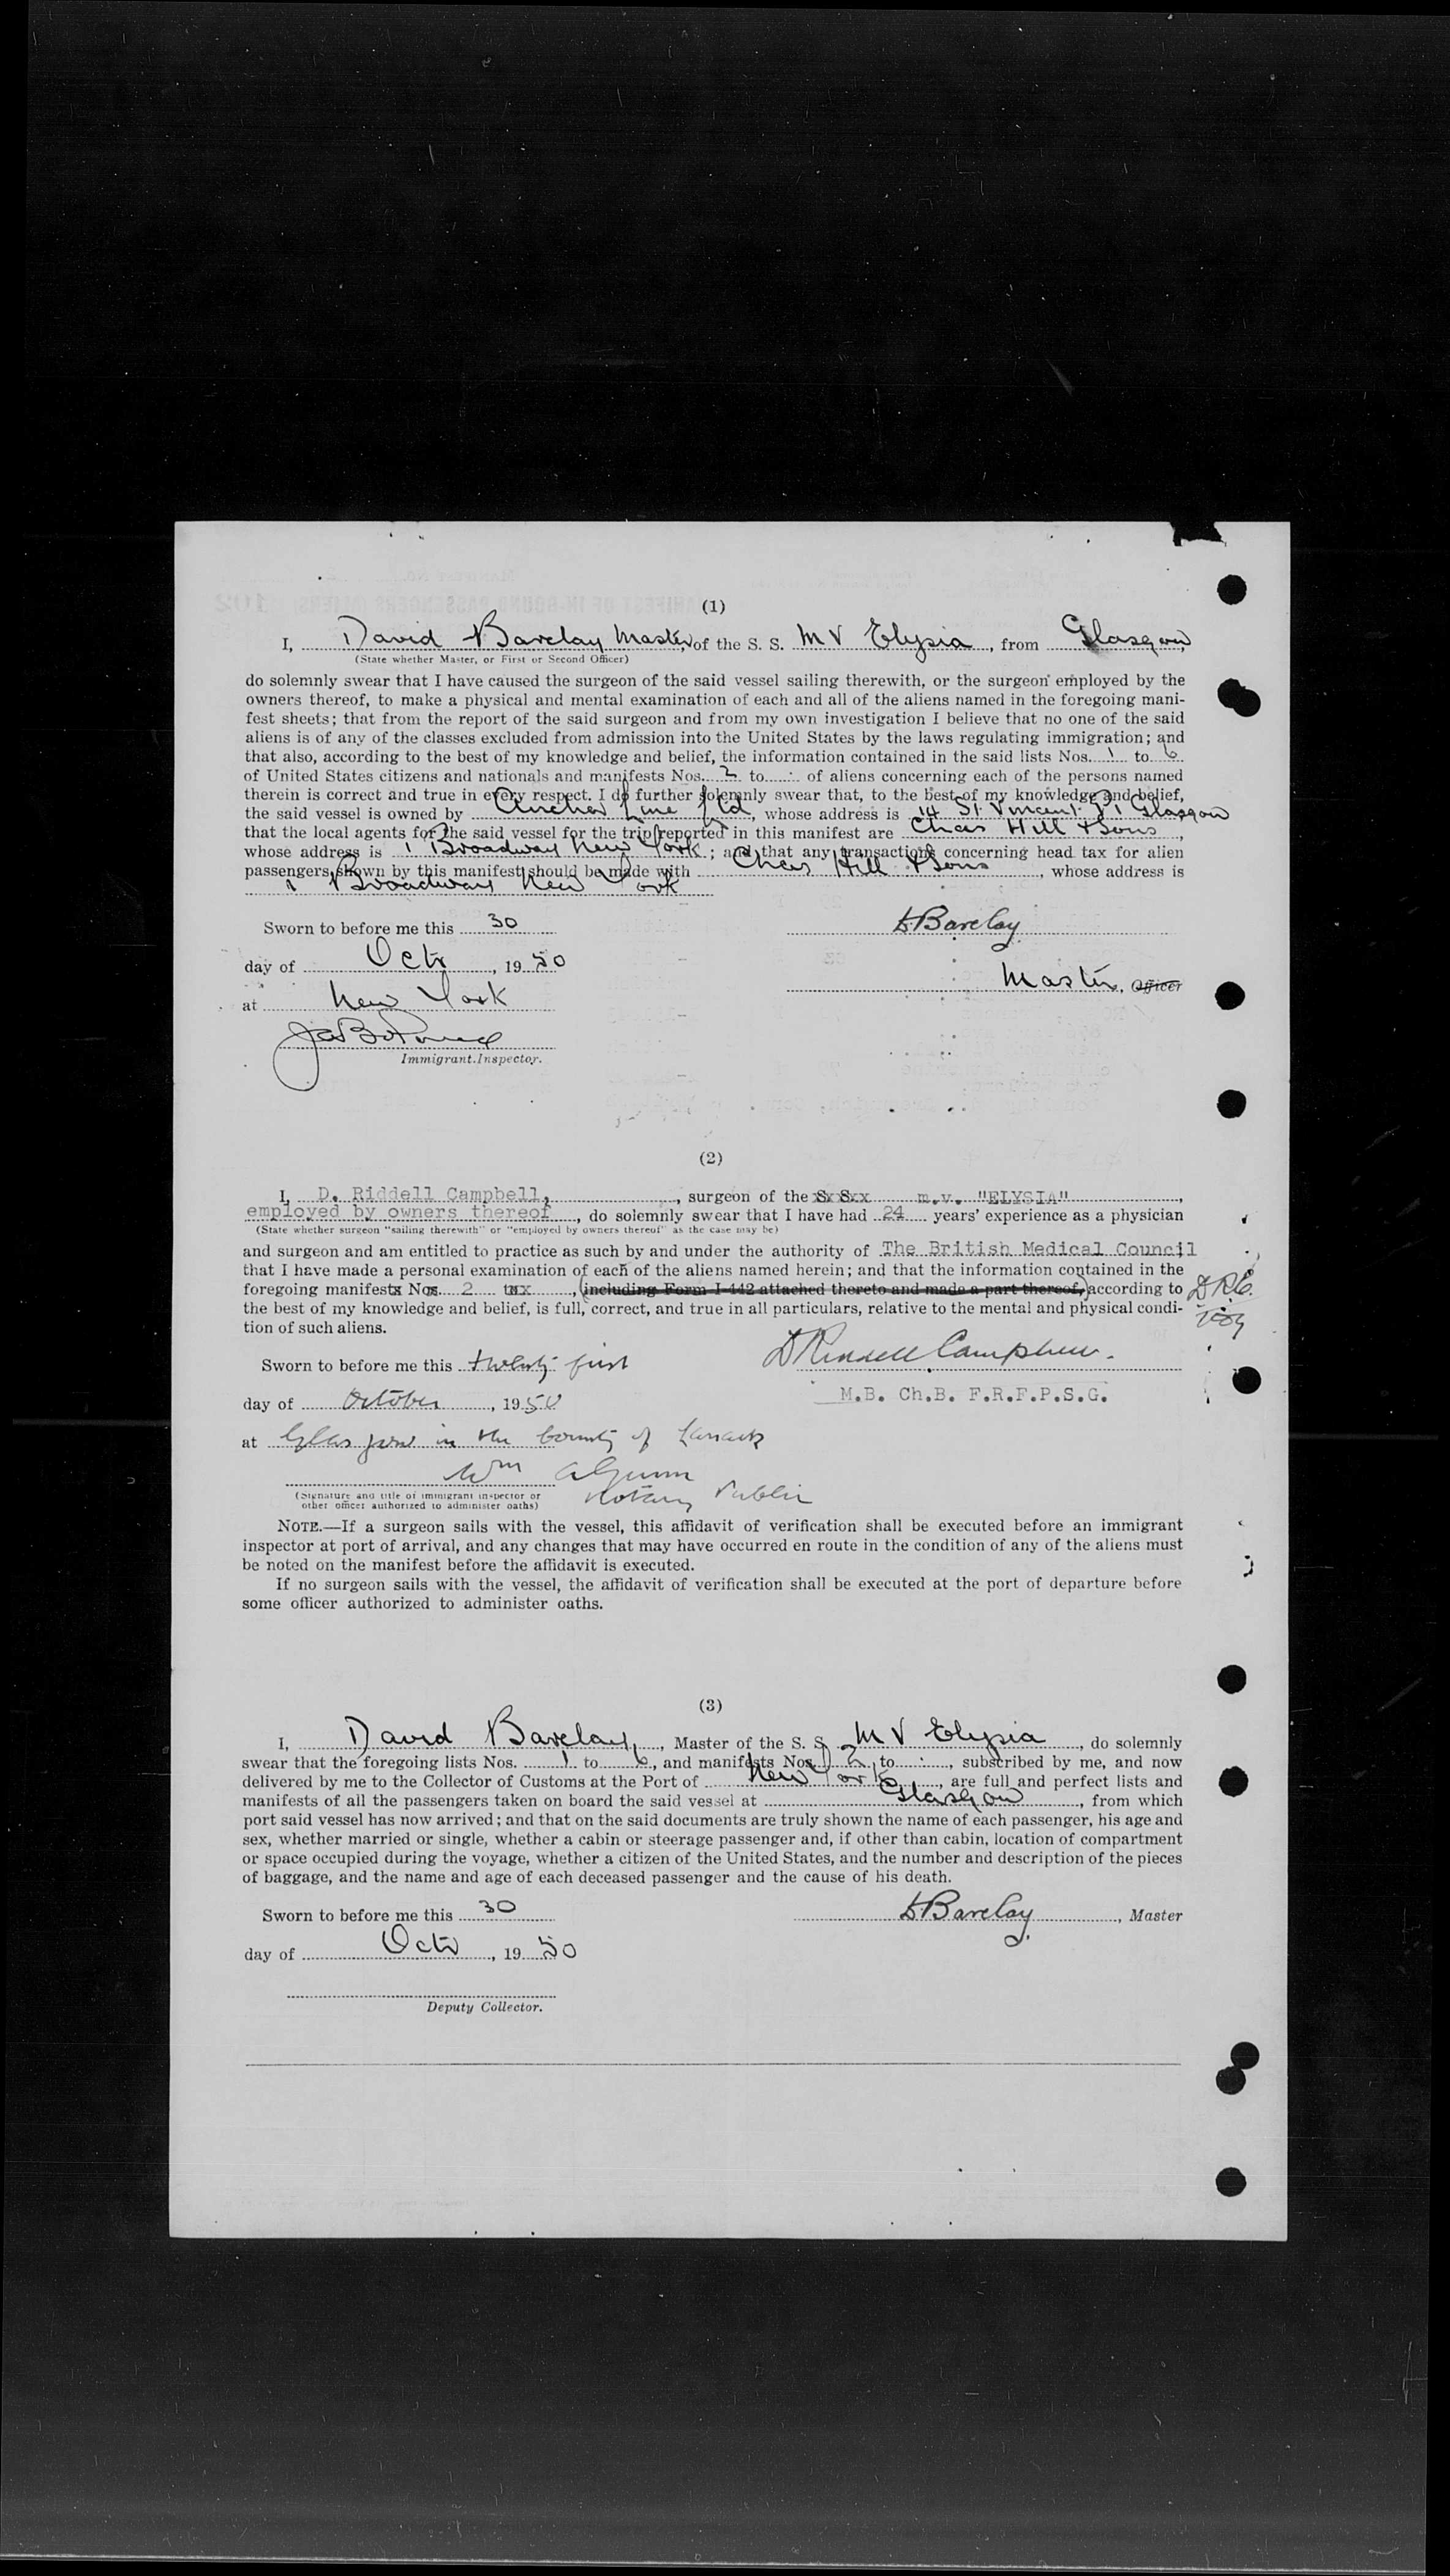 (1)
I, David Barclay Master, of the S. S. M V Elysia, from Glasgow,
(State whether Master, or First or Second Officer)
do solemnly swear that I have caused the surgeon of the said vessel sailing therewith, or the surgeon employed by the
owners thereof, to make a physical and mental examination of each and all of the aliens named in the foregoing mani-
fest sheets; that from the report of the said surgeon and from my own investigation I believe that no one of the said
aliens is of any of the classes excluded from admission into the United States by the laws regulating immigration; and
that also, according to the best of my knowledge and belief, the information contained in the said lists Nos. 1 to 6
of United States citizens and nationals and manifests Nos. 2 to - of aliens concerning each of the persons named
therein is correct and true in every respect. I do further solemnly swear that, to the best of my knowledge and belief,
the said vessel is owned by Anchor Line Ltd, whose address is 14 St Vincent St Glasgow
that the local agents for the said vessel for the trip reported in this manifest are Chas Hill & Sons,
whose address is 1 Broadway New York; and that any transactions concerning head tax for alien
passengers shown by this manifest should be made with Chas Hill & Sons, whose address is
1 Broadway New York
Sworn to before me this 30
D Barclay
day of Octr, 1950
Master, Officer
at New York
Immigrant Inspector.
(2)
I, D. Riddell Campbell, , surgeon of the S. S. m.v. "ELYSIA",
employed by owners thereof, do solemnly swear that I have had 24 years' experience as a physician
(State whether surgeon "sailing therewith" or "employed by owners thereof" as the case may be)
and surgeon and am entitled to practice as such by and under the authority of The British Medical Council;
that I have made a personal examination of each of the aliens named herein; and that the information contained in the
foregoing manifestx Nox. 2 toxx, (including Form I-442 attached thereto and made a part thereof,) according to D.R.C.
the best of my knowledge and belief, is full, correct, and true in all particulars, relative to the mental and physical condi-
tion of such aliens.
Sworn to before me this twenty first
D Riddell Campbell.
day of October, 1950
M.B. Ch.B. F.R.F.P.S.G.
at Glasgow in the County of Lanark
Wm A Gunn
(Signature and title of immigrant inspector or
other officer authorized to administer oaths)
Notary Public
NOTE.—If a surgeon sails with the vessel, this affidavit of verification shall be executed before an immigrant
inspector at port of arrival, and any changes that may have occurred en route in the condition of any of the aliens must
be noted on the manifest before the affidavit is executed.
If no surgeon sails with the vessel, the affidavit of verification shall be executed at the port of departure before
some officer authorized to administer oaths.
(3)
I, David Barclay, Master of the S. S. M V Elysia, do solemnly
swear that the foregoing lists Nos. 1 to 6, and manifests Nos. 2 to -, subscribed by me, and now
delivered by me to the Collector of Customs at the Port of New York, are full and perfect lists and
manifests of all the passengers taken on board the said vessel at Glasgow, from which
port said vessel has now arrived; and that on the said documents are truly shown the name of each passenger, his age and
sex, whether married or single, whether a cabin or steerage passenger and, if other than cabin, location of compartment
or space occupied during the voyage, whether a citizen of the United States, and the number and description of the pieces
of baggage, and the name and age of each deceased passenger and the cause of his death.
Sworn to before me this 30
D Barclay, Master
day of Octr, 1950
Deputy Collector.